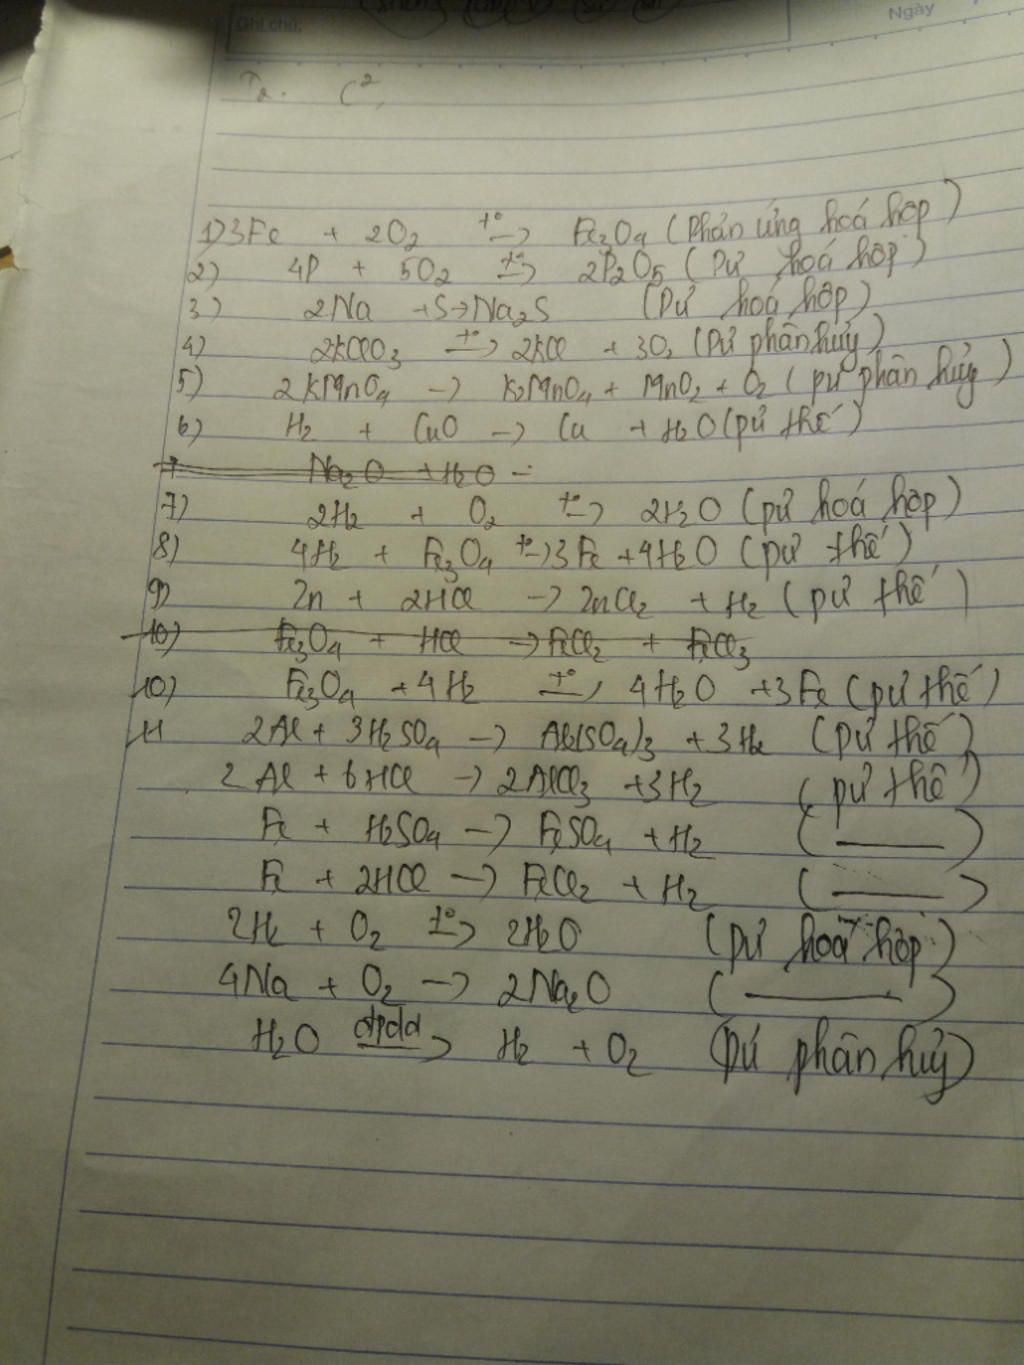 Ghi chú:
Ngày
C²,
1) 3Fe + 2O₂ —t°→ Fe₃O₄ (Phản ứng hoá hợp)
2) 4P + 5O₂ —t°→ 2P₂O₅ (pứ hoá hợp)
3) 2Na + S → Na₂S (pứ hoá hợp)
4) 2KClO₃ —t°→ 2KCl + 3O₂ (pứ phân hủy)
5) 2KMnO₄ → K₂MnO₄ + MnO₂ + O₂ (pứ phân hủy)
6) H₂ + CuO → Cu + H₂O (pứ thế)
7 Na₂O + H₂O -
7) 2H₂ + O₂ —t°→ 2H₂O (pứ hoá hợp)
8) 4H₂ + Fe₃O₄ —t°→ 3Fe + 4H₂O (pứ thế)
9) Zn + 2HCl → ZnCl₂ + H₂ (pứ thế)
10) Fe₃O₄ + HCl → FeCl₂ + FeCl₃
10) Fe₃O₄ + 4H₂ —t°→ 4H₂O + 3Fe (pứ thế)
11 2Al + 3H₂SO₄ → Al₂(SO₄)₃ + 3H₂ (pứ thế)
2Al + 6HCl → 2AlCl₃ + 3H₂ (pứ thế)
Fe + H₂SO₄ → FeSO₄ + H₂ (——)
Fe + 2HCl → FeCl₂ + H₂ (——)
2H₂ + O₂ —t°→ 2H₂O (pứ hoá hợp)
4Na + O₂ → 2Na₂O (——)
H₂O —đpdd→ H₂ + O₂ (pứ phân hủy)